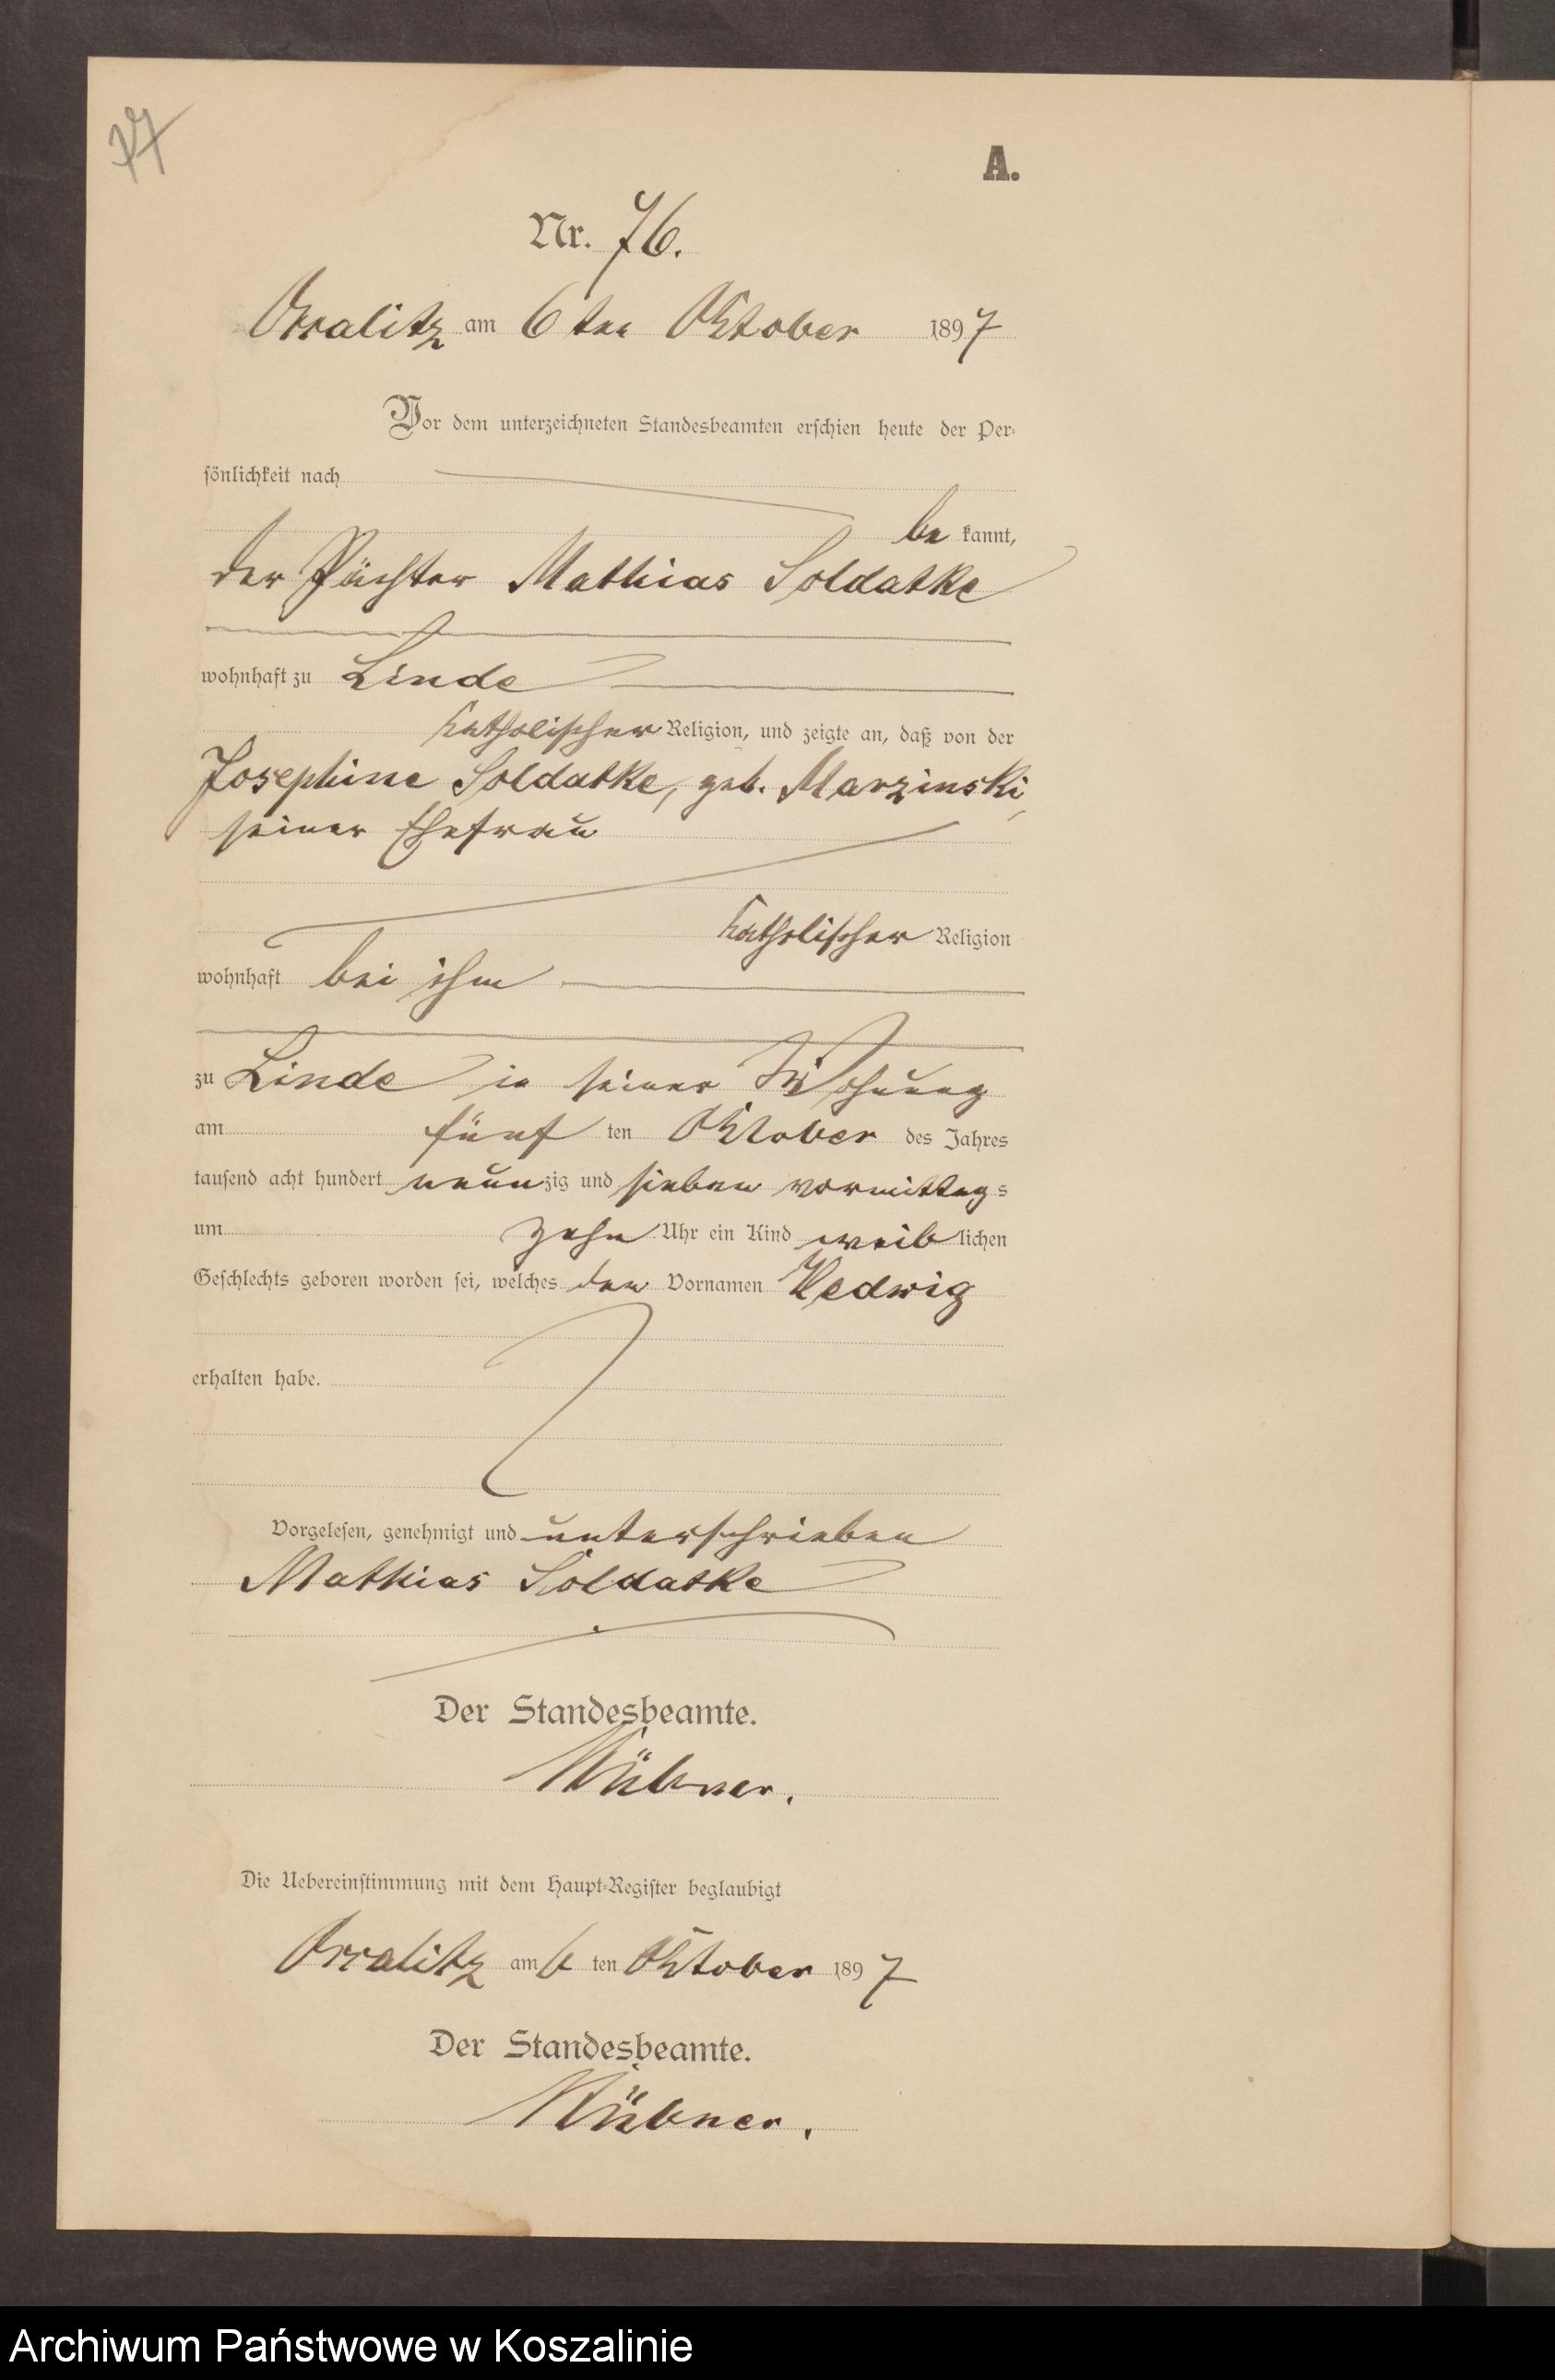 77
A.
Nr. 76.
am 6 ten Oktober 1897
Vor dem unterzeichneten Standesbeamten erschien heute der Per-
sönlichkeit nach
be kannt,
der Pächter Mathias Soldatke
wohnhaft zu Linde
katholischer Religion, und zeigte an, daß von der
Josephine Soldatke, geb. Marzinski,
seiner Ehefrau
katholischer Religion
wohnhaft bei ihm
zu Linde in seiner Wohnung
am fünf ten Oktober des Jahres
tausend acht hundert neunzig und sieben vormittags
um zehn Uhr ein Kind weiblichen
Geschlechts geboren worden sei, welches den Vornamen Hedwig
erhalten habe.
Vorgelesen, genehmigt und unterschrieben
Mathias Soldatke
Der Standesbeamte.
Die Uebereinstimmung mit dem Haupt-Register beglaubigt
am 6 ten Oktober 1897
Der Standesbeamte.
Archiwum Państwowe w Koszalinie